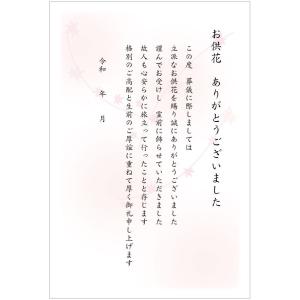 お供花　ありがとうございました
この度　葬儀に際しましては
立派なお供花を賜り誠にありがとうございました
謹んでお受けし　霊前に飾らせていただきました
故人も心安らかに旅立って行ったことと存じます
格別のご高配と生前のご厚誼に重ねて厚く御礼申し上げます
令和　年　月